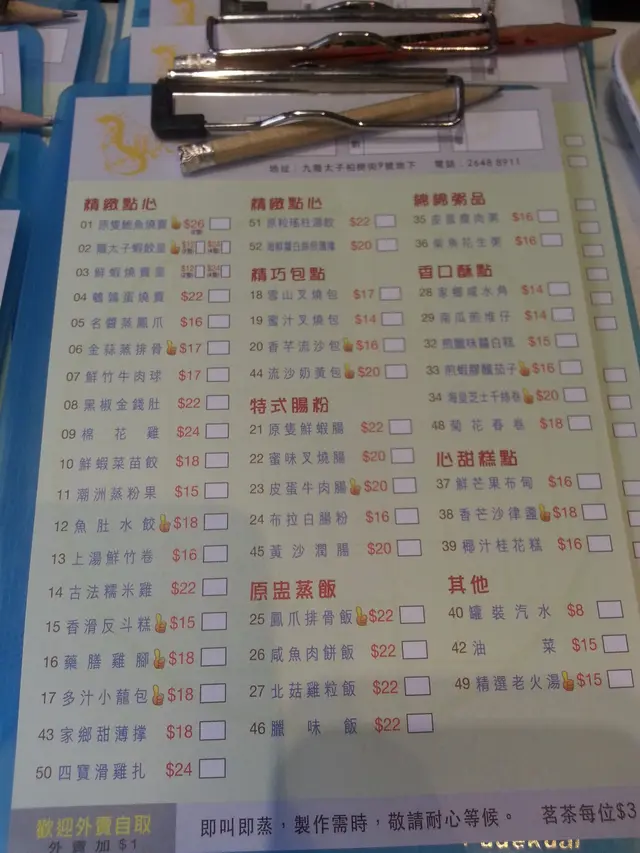 地址：九龍太子柏樹街9號地下 電話：2648 8911
精緻點心
01 原隻鮑魚燒賣 $26
02 龍太子蝦餃皇
03 鮮蝦燒賣皇
04 鵪鶉蛋燒賣 $22
05 名醬蒸鳳爪 $16
06 金蒜蒸排骨 $17
07 鮮竹牛肉球 $17
08 黑椒金錢肚 $22
09 棉花雞 $24
10 鮮蝦菜苗餃 $18
11 潮洲蒸粉果 $15
12 魚肚水餃 $18
13 上湯鮮竹卷 $16
14 古法糯米雞 $22
15 香滑反斗糕 $15
16 藥膳雞腳 $18
17 多汁小籠包 $18
43 家鄉甜薄撐 $18
50 四寶滑雞扎 $24
精緻點心
51 原粒瑤柱湯餃 $22
52 $20
精巧包點
18 雪山叉燒包 $17
19 蜜汁叉燒包 $14
20 香芋流沙包 $16
44 流沙奶黃包 $20
特式腸粉
21 原隻鮮蝦腸 $22
22 蜜味叉燒腸 $20
23 皮蛋牛肉腸 $20
24 布拉白腸粉 $16
45 黃沙潤腸 $20
原盅蒸飯
25 鳳爪排骨飯 $22
26 咸魚肉餅飯 $22
27 北菇雞粒飯 $22
46 臘味飯 $22
綿綿粥品
35 皮蛋瘦肉粥 $16
36 柴魚花生粥 $16
香口酥點
28 家鄉咸水角 $14
29 南瓜煎堆仔 $14
32 煎臘味蘿白糕 $15
33 煎蝦膠釀茄子 $16
34 海皇芝士千絲卷 $20
48 菊花春卷 $18
心甜糕點
37 鮮芒果布甸 $16
38 香芒沙律盞 $18
39 椰汁桂花糕 $16
其他
40 罐裝汽水 $8
42 油菜 $15
49 精選老火湯 $15
歡迎外賣自取
外賣加$1
即叫即蒸，製作需時，敬請耐心等候。 茗茶每位$3